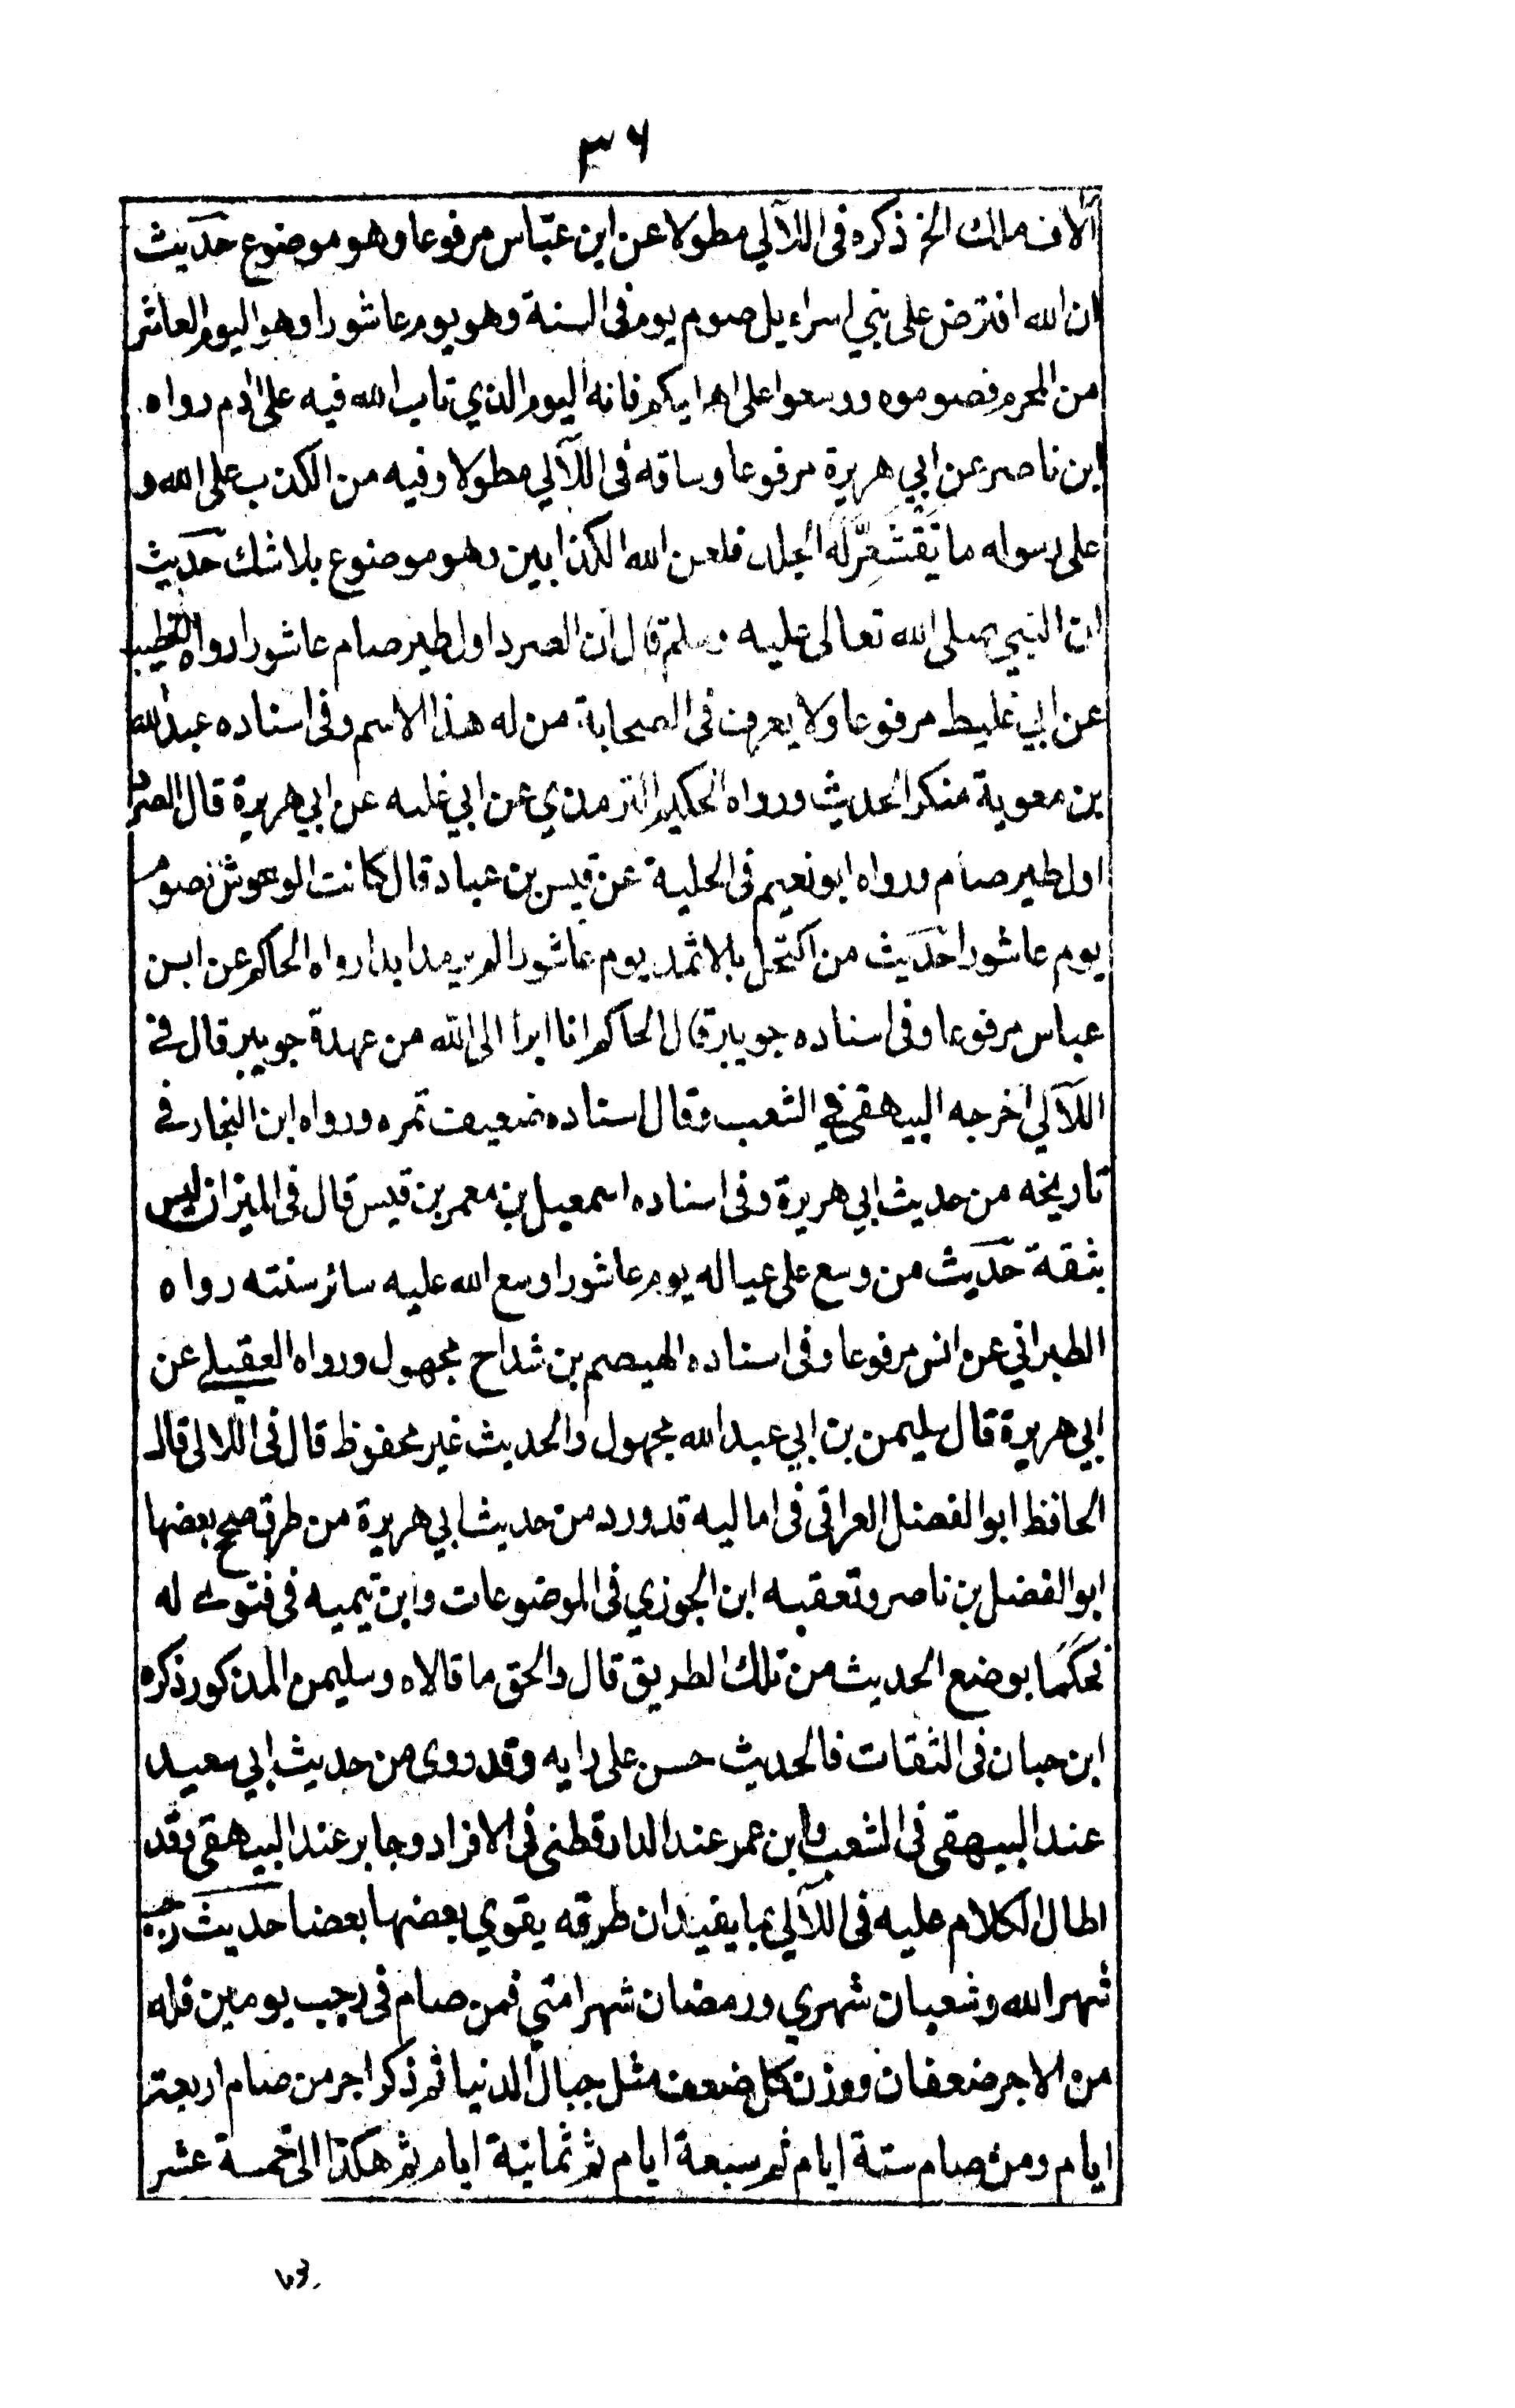 ٣٦
آلاف ملك الخ ذكره فى اللآلي مطولا عن ابن عبّاس مرفوعا وهو موضوع حديث
ان الله افترض على بني اسراءيل صوم يوم فى السنة وهو يوم عاشورا وهو اليوم العاشر
من المحرم فصوموه ووسعوا على اهاليكم فانه اليوم الذي تاب الله فيه على ادم رواه
ابن ناصر عن ابي هريرة مرفوعا وساقه فى اللآلي مطولا وفيه من الكذب على الله و
على رسوله ما تَقْشَعِرُّ له الجلد فلعن الله الكذابين وهو موضوع بلا شك حديث
ان النبي صلى الله تعالى عليه وسلم قال ان الصرد اول طير صام عاشورا رواه الخطيب
عن ابي غليط مرفوعا ولا يعرف فى الصحابة من له هذا الاسم وفى اسناده عبد الله
بن معوية منكر الحديث ورواه الحكيم الترمذي عن ابي غلبه عن ابي هريرة قال الصرد
اول طير صام ورواه ابو نعيم فى الحلية عن قيس بن عباد قال كانت الوحوش تصوم
يوم عاشورا حديث من اكتحل بالاثمد يوم عاشورا لم يرمد ابدا رواه الحاكم عن ابن
عباس مرفوعا وفى اسناده جويبر قال الحاكم انا ابرا الى الله من عهدة جويبر قال في
اللآلي اخرجه البيهقي في الشعب وقال اسناده ضعيف تمره ورواه ابن النجار في
تاريخه من حديث ابي هريرة وفى اسناده اسمعيل بن معمر بن قيس قال فى الميزان ليس
بثقة حديث من وسع على عياله يوم عاشورا وسع الله عليه سائر سنته رواه
الطبراني عن انس مرفوعا وفى اسناده الهيصم بن شداح مجهول ورواه العقيلي عن
ابي هريرة قال سليمن بن ابي عبد الله مجهول والحديث غير محفوظ قال فى اللالى قال
الحافظ ابو الفضل العراقى فى اماليه قد ورد من حديث ابي هريرة من طرق صحح بعضها
ابو الفضل بن ناصر وتعقبه ابن الجوزي فى الموضوعات وابن تيميه فى فتوى له
فحكما بوضع الحديث من تلك الطريق قال والحق ما قالاه وسليمن المذكور ذكره
ابن حبان فى الثقات فالحديث حسن على رايه وقد روى من حديث ابي سعيد
عند البيهقى فى الشعب وابن عمر عند الدارقطنى فى الافراد وجابر عند البيهقى وقد
اطال الكلام عليه فى اللآلي بما يفيد ان طرقه يقوي بعضها بعضا حديث رجب
شهر الله وشعبان شهري ورمضان شهر امتي فمن صام فى رجب يومين فله
من الاجر ضعفان ووزن كل ضعف مثل جبال الدنيا ثم ذكر اجر من صام اربعة
ايام ومن صام ستة ايام ثم سبعة ايام ثم ثمانية ايام ثم هكذا الى خمسة عشر